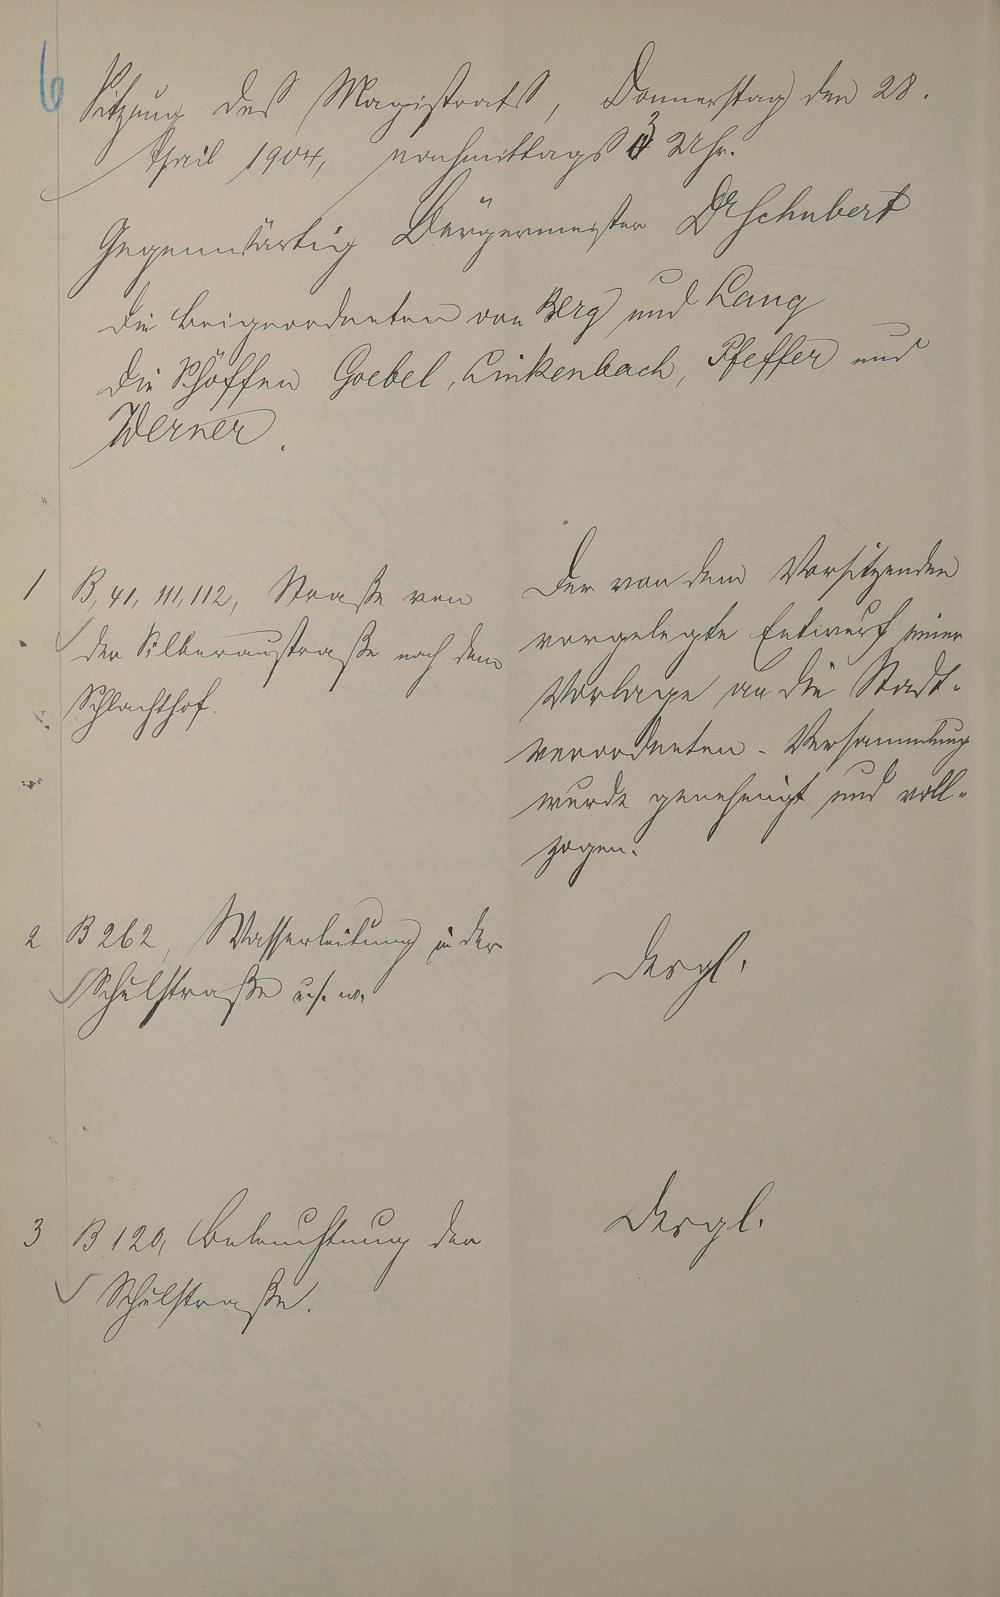 6
Sitzung des Magistrats, Donnerstag den 28.
April 1904, nachmittags 3 Uhr.
Gegenwärtig Bürgermeister Dr Schubert
die Beigeordneten von Berg und Lang
die Schöffen Goebel, Linkenbach, Pfeffer und
Werner.
1 B, 41, 111, 112, Straße von
der Silberaustraße nach dem
Schlachthof.
Der von dem Vorsitzenden
vorgelegte Entwurf einer
Vorlage an die Stadt-
verordneten-Versammlung
wurde genehmigt und voll-
zogen.
2 B 262, Wasserleitung in der
Schulstraße u.s.w.
Desgl.
3 B 120, Beleuchtung der
Schulstraße.
Desgl.